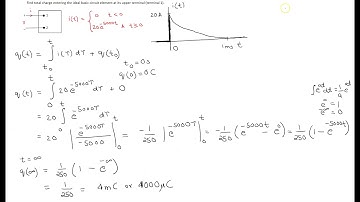 Find total charge entering the ideal basic circuit element at its upper terminal (terminal 1).
i(t) = { 0 t<0
20e^-5000t A t≥0
i(t)
20A
0 1ms t
q(t) = ∫_{t0}^{t} i(τ) dτ + q(t0)
t0 = 0s
q(0) = 0C
q(t) = ∫_0^t 20 e^-5000τ dτ + 0
= 20 e^-5000τ / -5000 |_0^t = -1/250 e^-5000τ |_0^t = -1/250 (e^-5000t - e^0) = 1/250 (1 - e^-5000t)
∫e^at dt = 1/a e^at
e^-∞ = 0
e^0 = 1
t = ∞
q(∞) = 1/250 (1 - e^-∞)
= 1/250 = 4mC or 4000μC